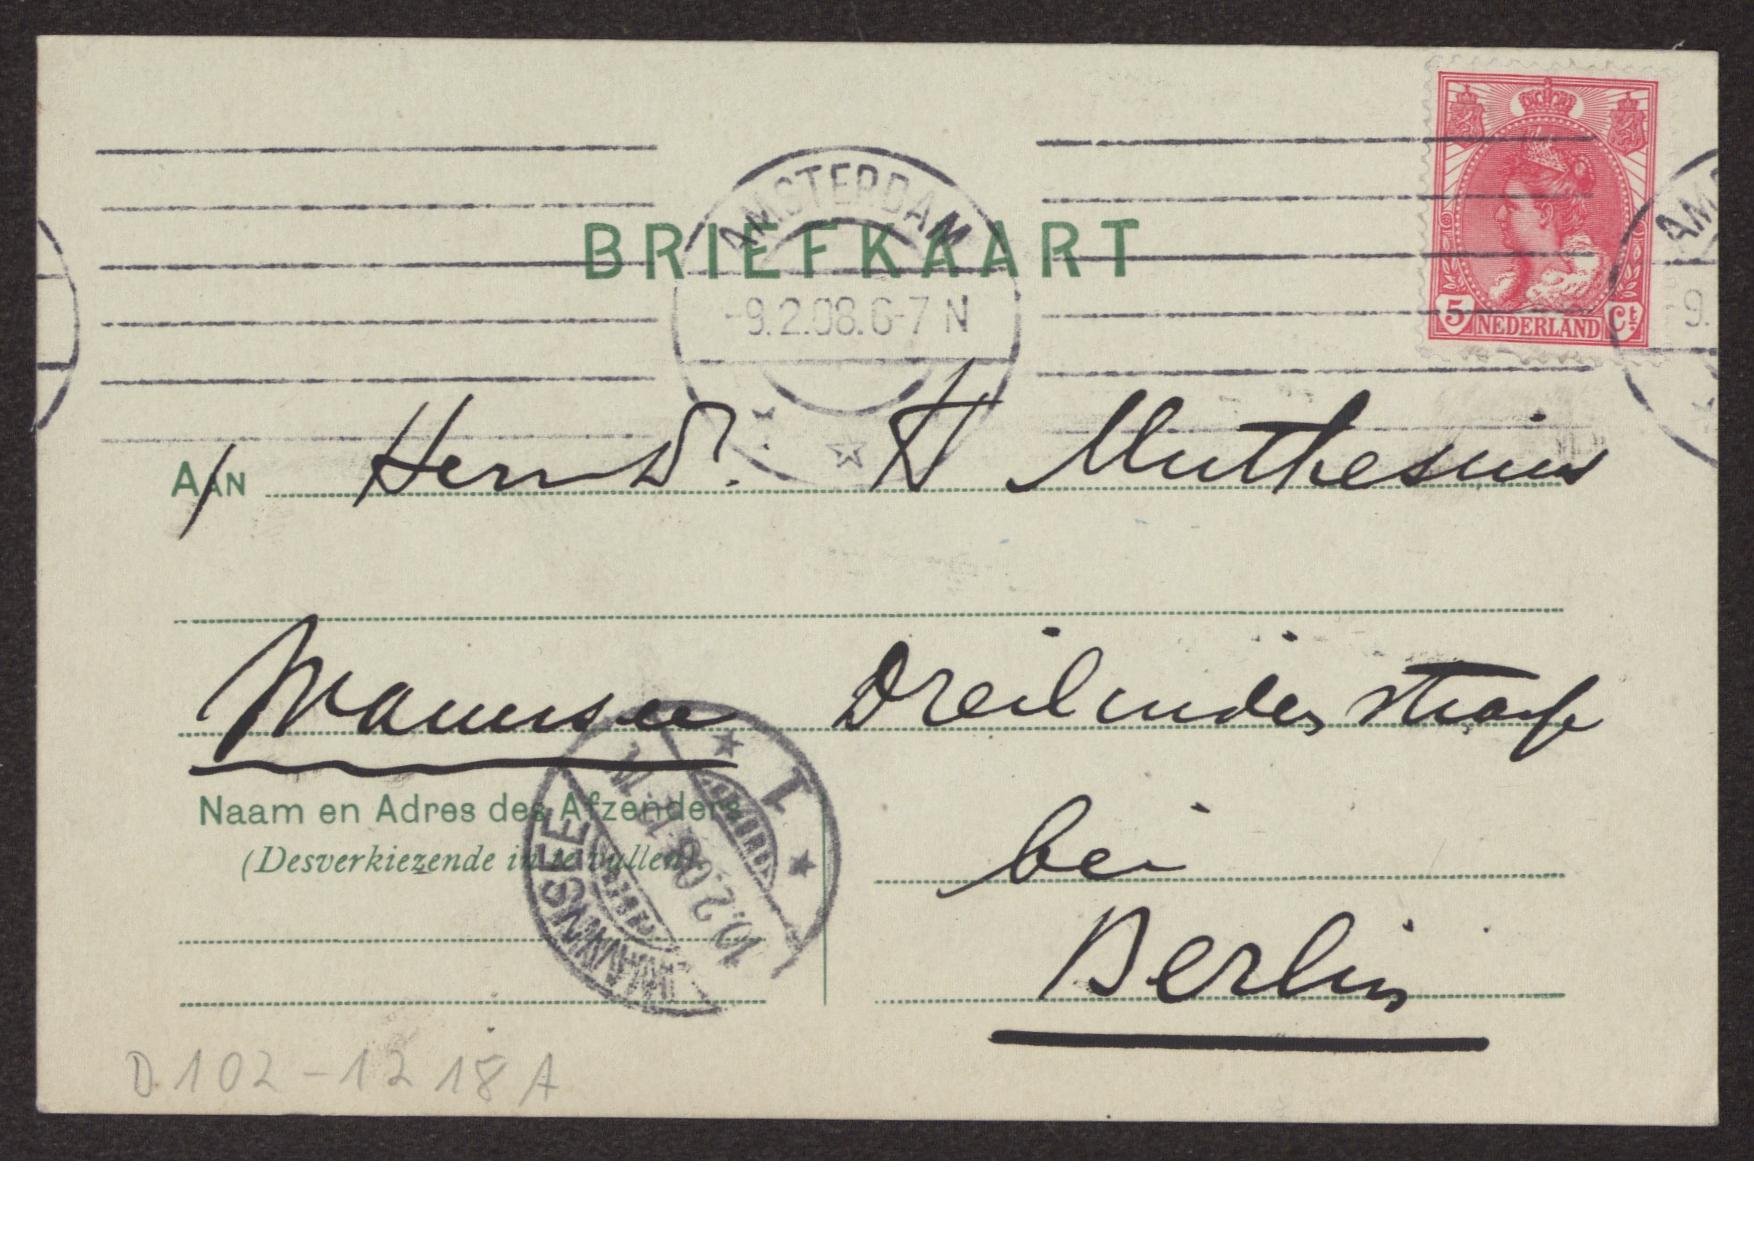 AMSTERDAM
BRIEFKAART
-9.2.08.6-7 N
5 NEDERLAND Ct
AM
9.
AAN Herrn Dr. H Muthesius
Wannsee Dreilindenstraße
Naam en Adres des Afzenders
(Desverkiezende in te vullen).
bei
Berlin
WANNSEE
10.2.08
1
D.102-1218A